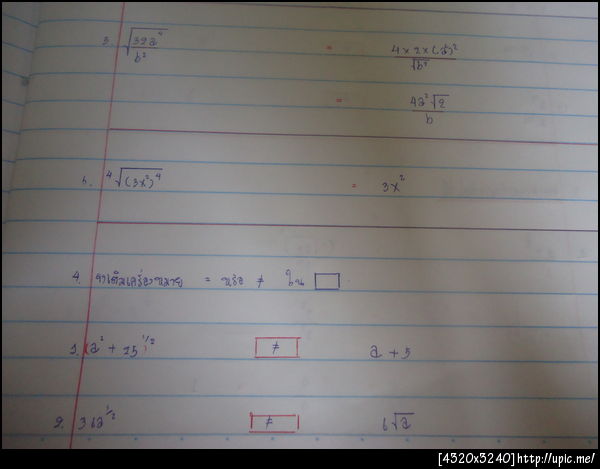 3. √(32a⁴/b²) = 4 × 2 × (a)²/√b²
= 4a²√2/b
4. ⁴√(3x²)⁴ = 3x²
4. จงเติมเครื่องหมาย = หรือ ≠ ใน □
1. (a² + 25)^1/2 ≠ a + 5
2. 36a^1/2 ≠ 6√a
[4320x3240]http://upic.me/